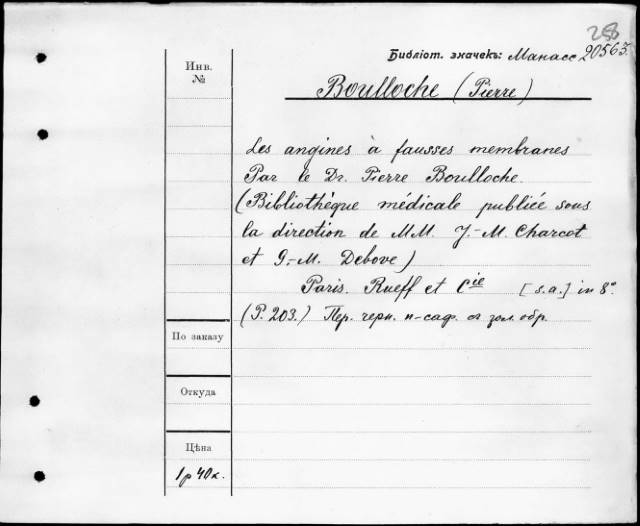 258
Библіот. значекъ: Манасс 20563.
Инв.
№
Boulloche (Pierre)
Les angines à fausses membranes
Par le Dr. Pierre Boulloche.
(Bibliothèque médicale publiée sous
la direction de MM. J.-M. Charcot
et G.-M. Debove)
Paris. Rueff et Cie [s.a.] in 8°
(P. 203.) Пер. черн. п-саф. съ зол. обр.
По заказу
Откуда
Цѣна
1 р 40 к.